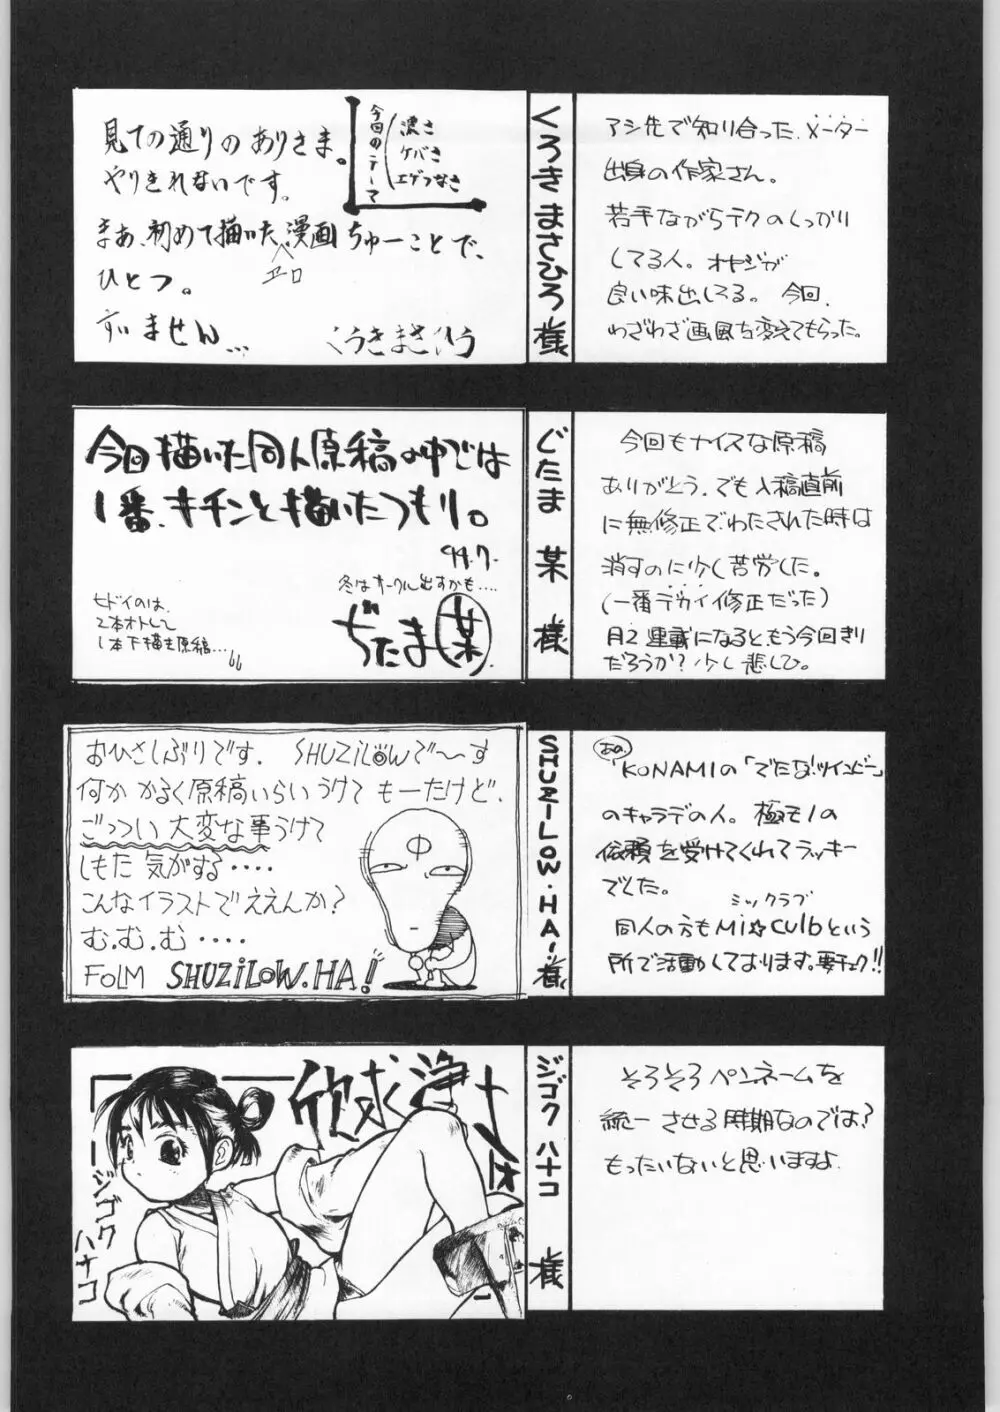 見ての通りのありさま。
やりきれないです。
まあ、初めて描いた漫画ちゅーことで、
エロ
ひとつ。
すいません…
くろきまさひろ
今回のテーマ
濃さ
ケバさ
エゲつなさ
くろきまさひろ様
アシ先で知り合った、メーター
出身の作家さん。
若手ながらテクのしっかり
してる人。オヤジが
良い味出してる。今回、
わざわざ画風を変えてもらった。
今回描いた同人原稿の中では
1番、キチンと描いたつもり。
99.7.
冬はサークル出すかも....
ヒドイのは、
2本オトして
1本下描き原稿…
ぢたま(某)
ぢたま 某 様
今回もナイスな原稿
ありがとう。でも入稿直前
に無修正でわたされた時は
消すのに少し苦労した。
(一番デカイ修正だった)
月2連載になると、もう今回きり
だろうか?少し悲しい。
おひさしぶりです. SHUZILOWで〜す
何か かるく原稿いらいうけて もーたけど.
ごっつい 大変な事うけて
しもた 気がする・・・・
こんなイラストでええんか?
む.む.む・・・・
FOLM SHUZiLOW.HA!
中
SHUZiLOW.HA!様
あの、
「KONAMIの「でたな!ツインビー」
のキャラデの人。極モノの
依頼を受けてくれてラッキー
でした。
ミックラブ
同人の方もMi☆Culbという
所で活動しております。要チェク!!
欣求浄土
ジゴク
ハナコ
ジゴク ハナコ 様
そろそろペンネームを
統一させる時期なのでは?
もったいないと思いますよ.